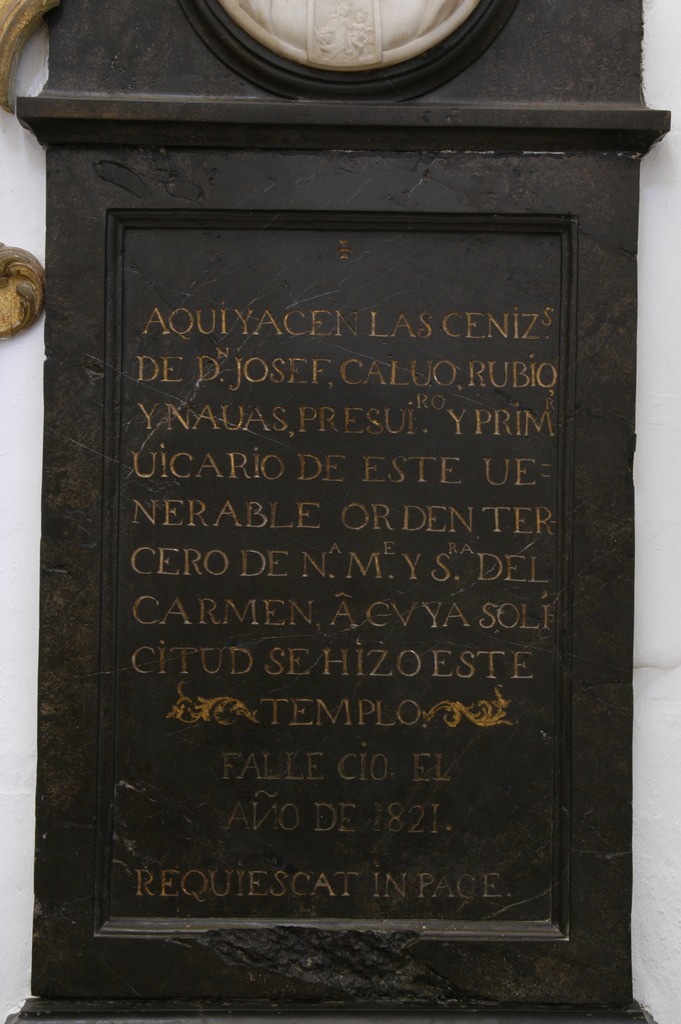 ✠
AQUI YACEN LAS CENIZ.ˢ
DE D.ᴺ JOSEF, CALUO, RUBIO,
Y NAUAS, PRESUI.ᴿᴼ Y PRIMᴿ
UICARIO DE ESTE UE=
NERABLE ORDEN TER
CERO DE N.ᴬ M.ᴱ Y S.ᴿᴬ DEL
CARMEN, Â CVYA SOLI
CITUD SE HIZO ESTE
TEMPLO.
FALLECIO EL
AÑO DE 1821.
REQUIESCAT IN PACE.